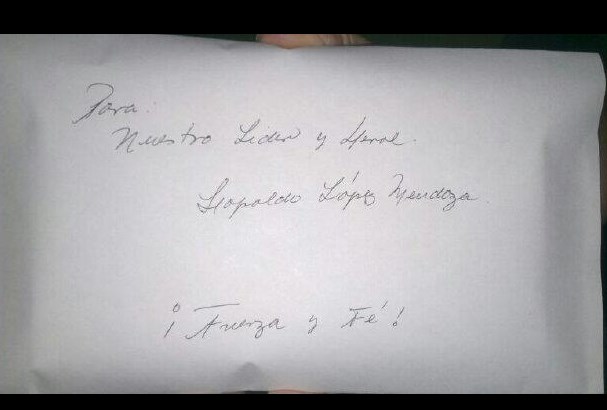 Para:
Nuestro Lider y Heroe.
Leopoldo López Mendoza.
¡Fuerza y Fé!